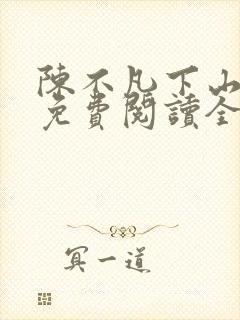 陳不凡下山
免費閱讀全
冥一道